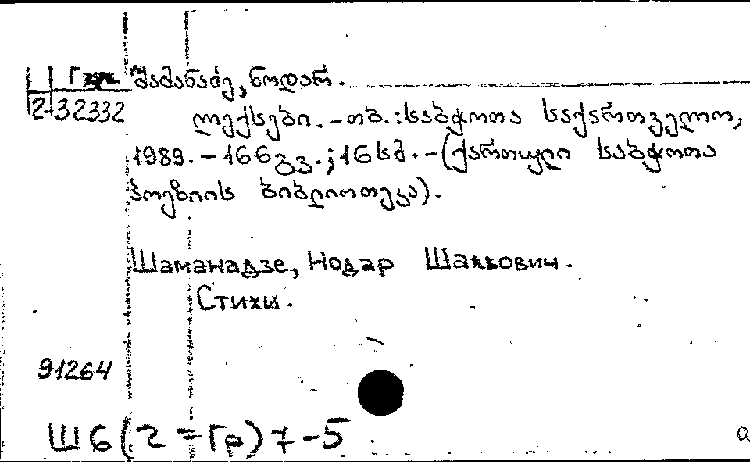 Груз. შამანაძე, ნოდარ.
2-32332
ლექსები. - თბ. : საბჭოთა საქართველო,
1989. - 166 გვ. ; 16 სმ. - (ქართული საბჭოთა
პოეზიის ბიბლიოთეკა).
Шаманадзе, Нодар Шалвович.
Стихи.
91264
Ш6(2=Гр)7-5
a